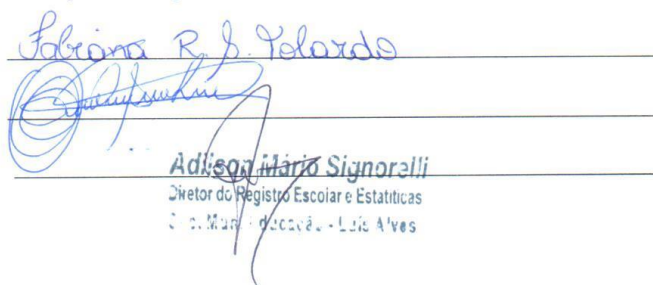 Fabiana R. S. Tolardo
Adilson Mário Signorelli
Diretor do Registro Escolar e Estatíticas
- Luis Alves